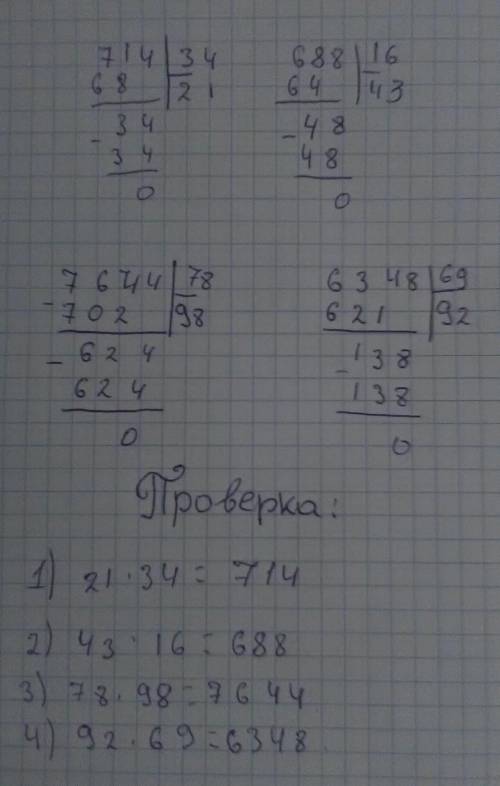 714 34
68 21
- 34
34
0
688 16
64 43
- 48
48
0
7644 78
- 702 98
- 624
624
0
6348 69
621 92
- 138
138
0
Проверка:
1) 21 · 34 = 714
2) 43 · 16 = 688
3) 78 · 98 = 7644
4) 92 · 69 = 6348